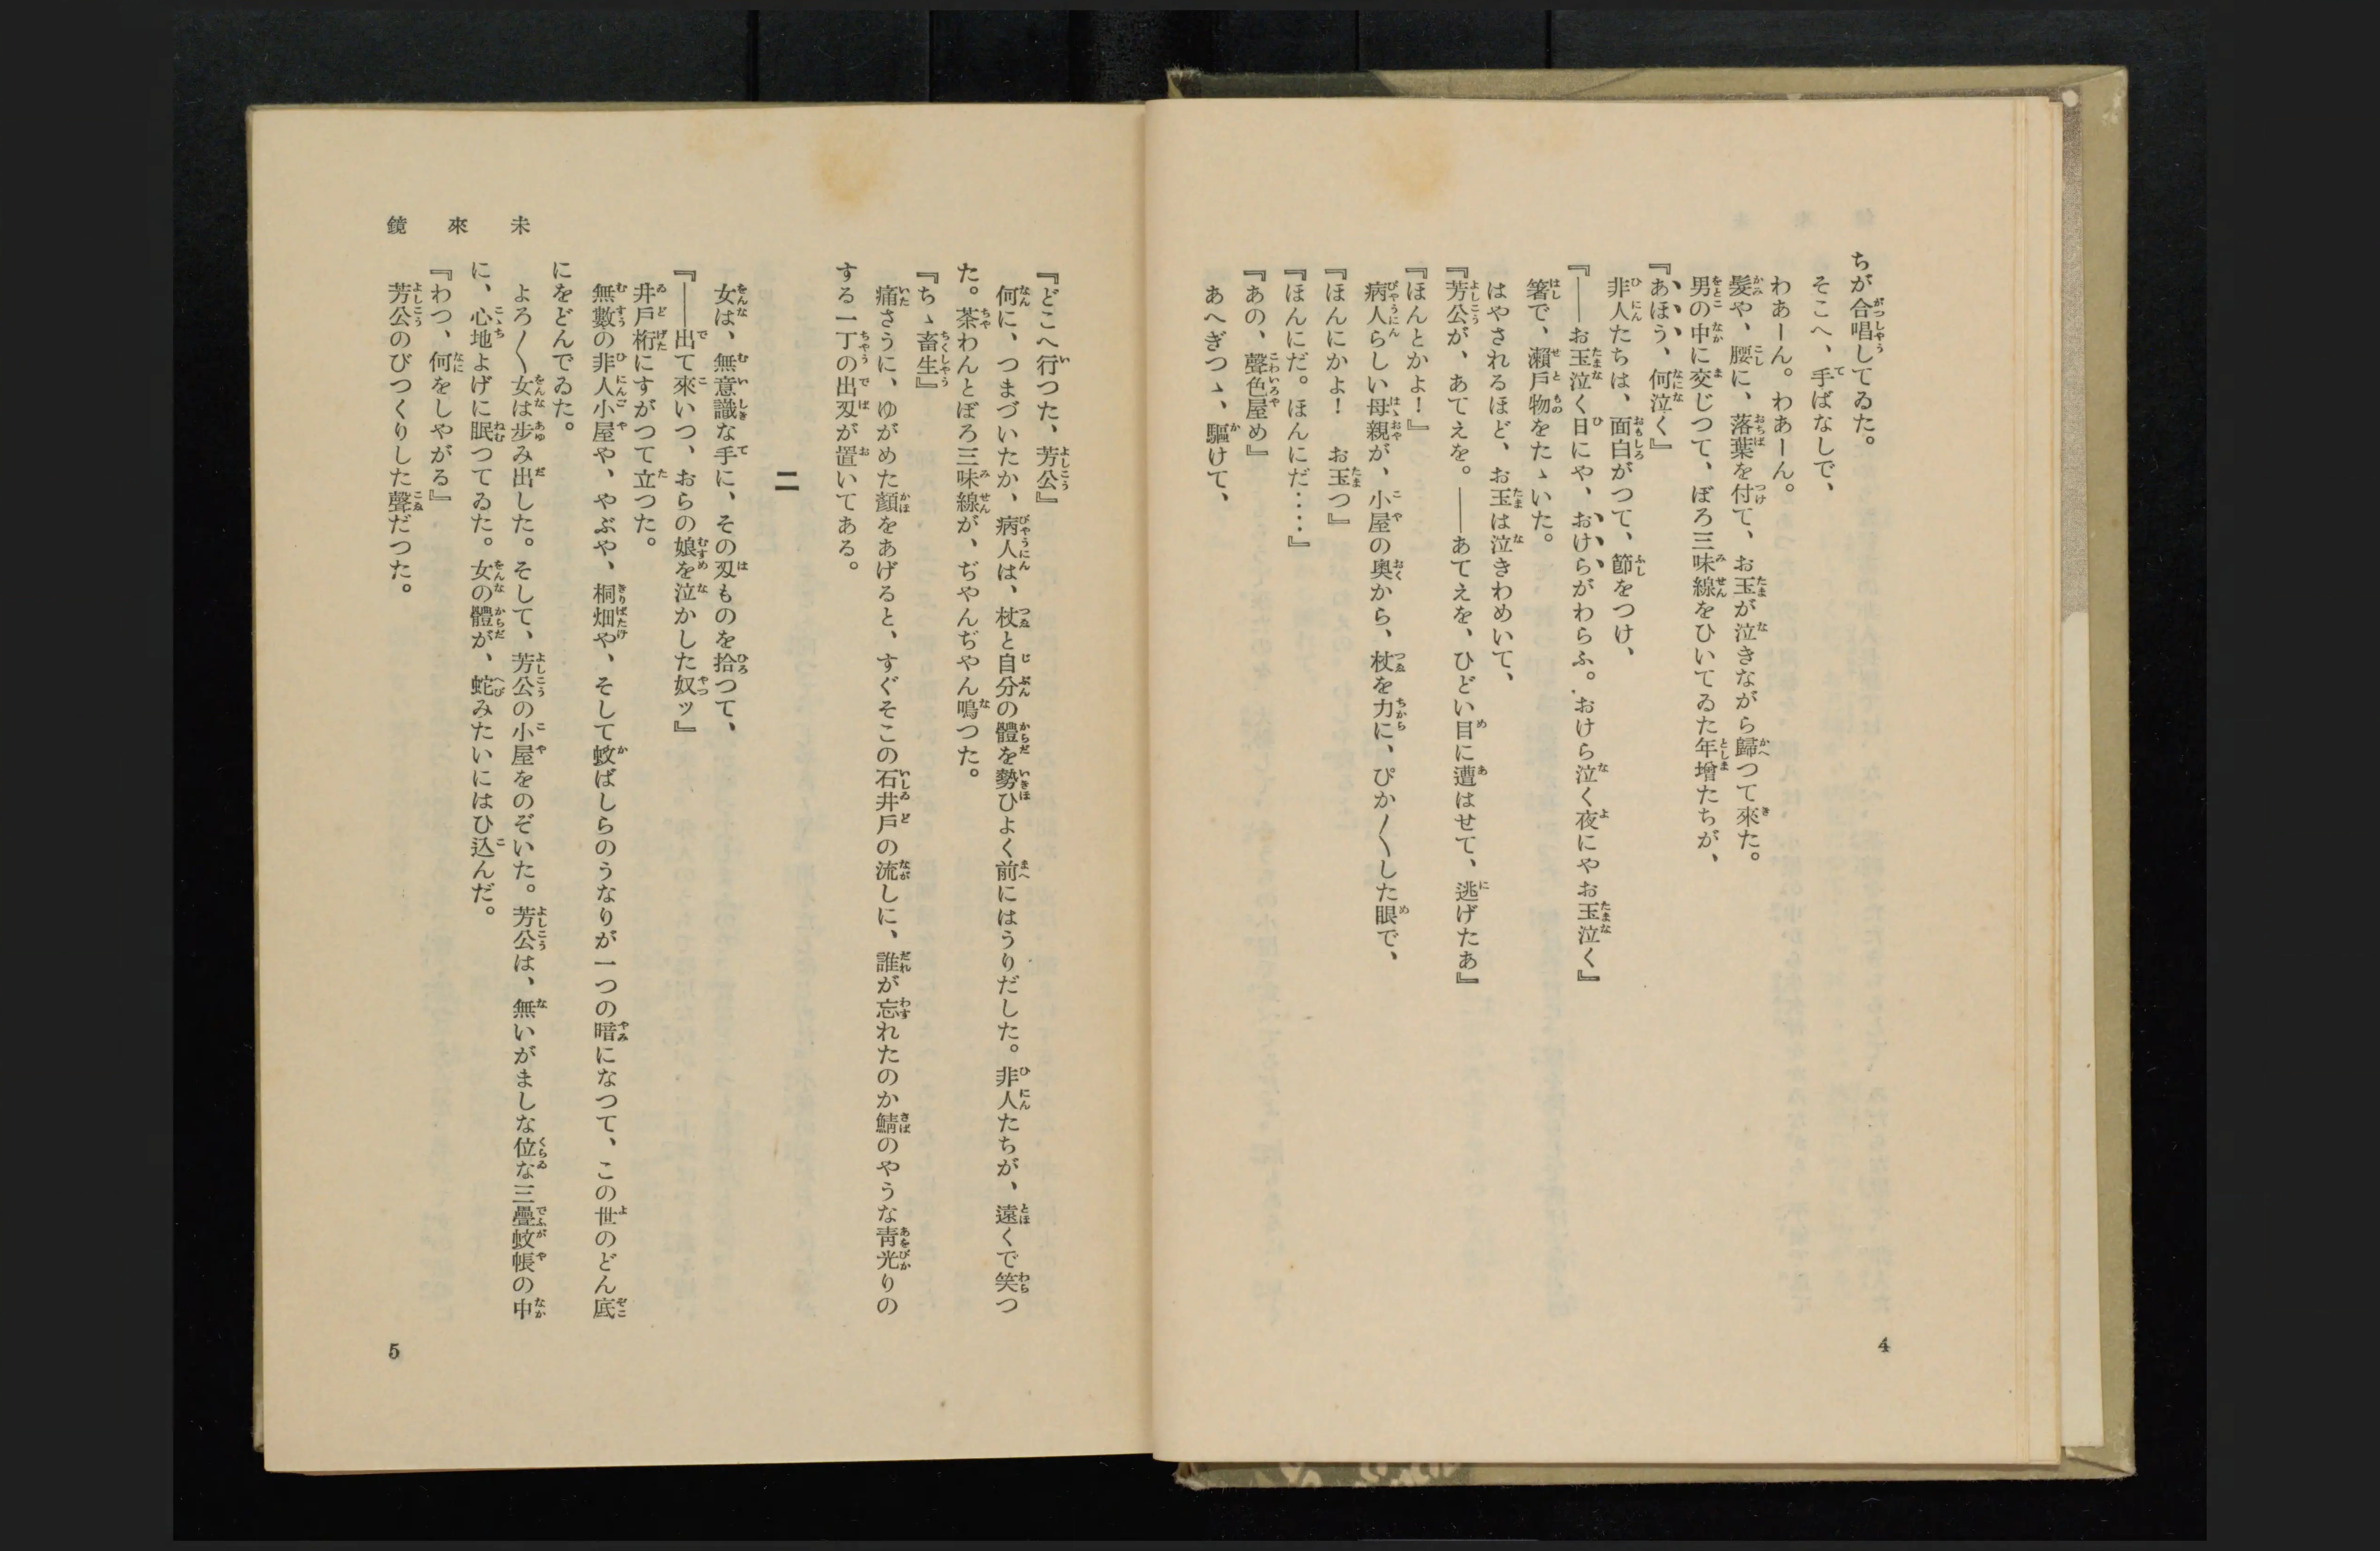 ちが合唱してゐた。
そこへ、手ばなしで、
わあーん。わあーん。
髪や、腰に、落葉を付て、お玉が泣きながら歸つて來た。
男の中に交じつて、ぼろ三味線をひいてゐた年增たちが、
『あほう、何泣く』
非人たちは、面白がつて、節をつけ、
『――お玉泣く日にや、おけらがわらふ。おけら泣く夜にやお玉泣く』
箸で、瀨戶物をたゝいた。
はやされるほど、お玉は泣きわめいて、
『芳公が、あてえを。――あてえを、ひどい目に遭はせて、逃げたあ』
『ほんとかよ！』
病人らしい母親が、小屋の奥から、杖を力に、ぴか〱した眼で、
『ほんにかよ！　お玉つ』
『ほんにだ。ほんにだ‥‥』
『あの、聲色屋め』
あへぎつゝ、驅けて、
4
『どこへ行つた、芳公』
何に、つまづいたか、病人は、杖と自分の體を勢ひよく前にはうりだした。非人たちが、遠くで笑つ
た。茶わんとぼろ三味線が、ぢやんぢやん鳴つた。
『ちゝ畜生』
痛さうに、ゆがめた顏をあげると、すぐそこの石井戶の流しに、誰が忘れたのか鯖のやうな靑光りの
する一丁の出刄が置いてある。
二
女は、無意識な手に、その刄ものを拾つて、
『――出て來いつ、おらの娘を泣かした奴ッ』
井戶桁にすがつて立つた。
無數の非人小屋や、やぶや、桐畑や、そして蚊ばしらのうなりが一つの暗になつて、この世のどん底
にをどんでゐた。
よろ〱女は步み出した。そして、芳公の小屋をのぞいた。芳公は、無いがましな位な三疊蚊帳の中
に、心地よげに眠つてゐた。女の體が、蛇みたいにはひ込んだ。
『わつ、何をしやがる』
芳公のびつくりした聲だつた。
未來鏡
5